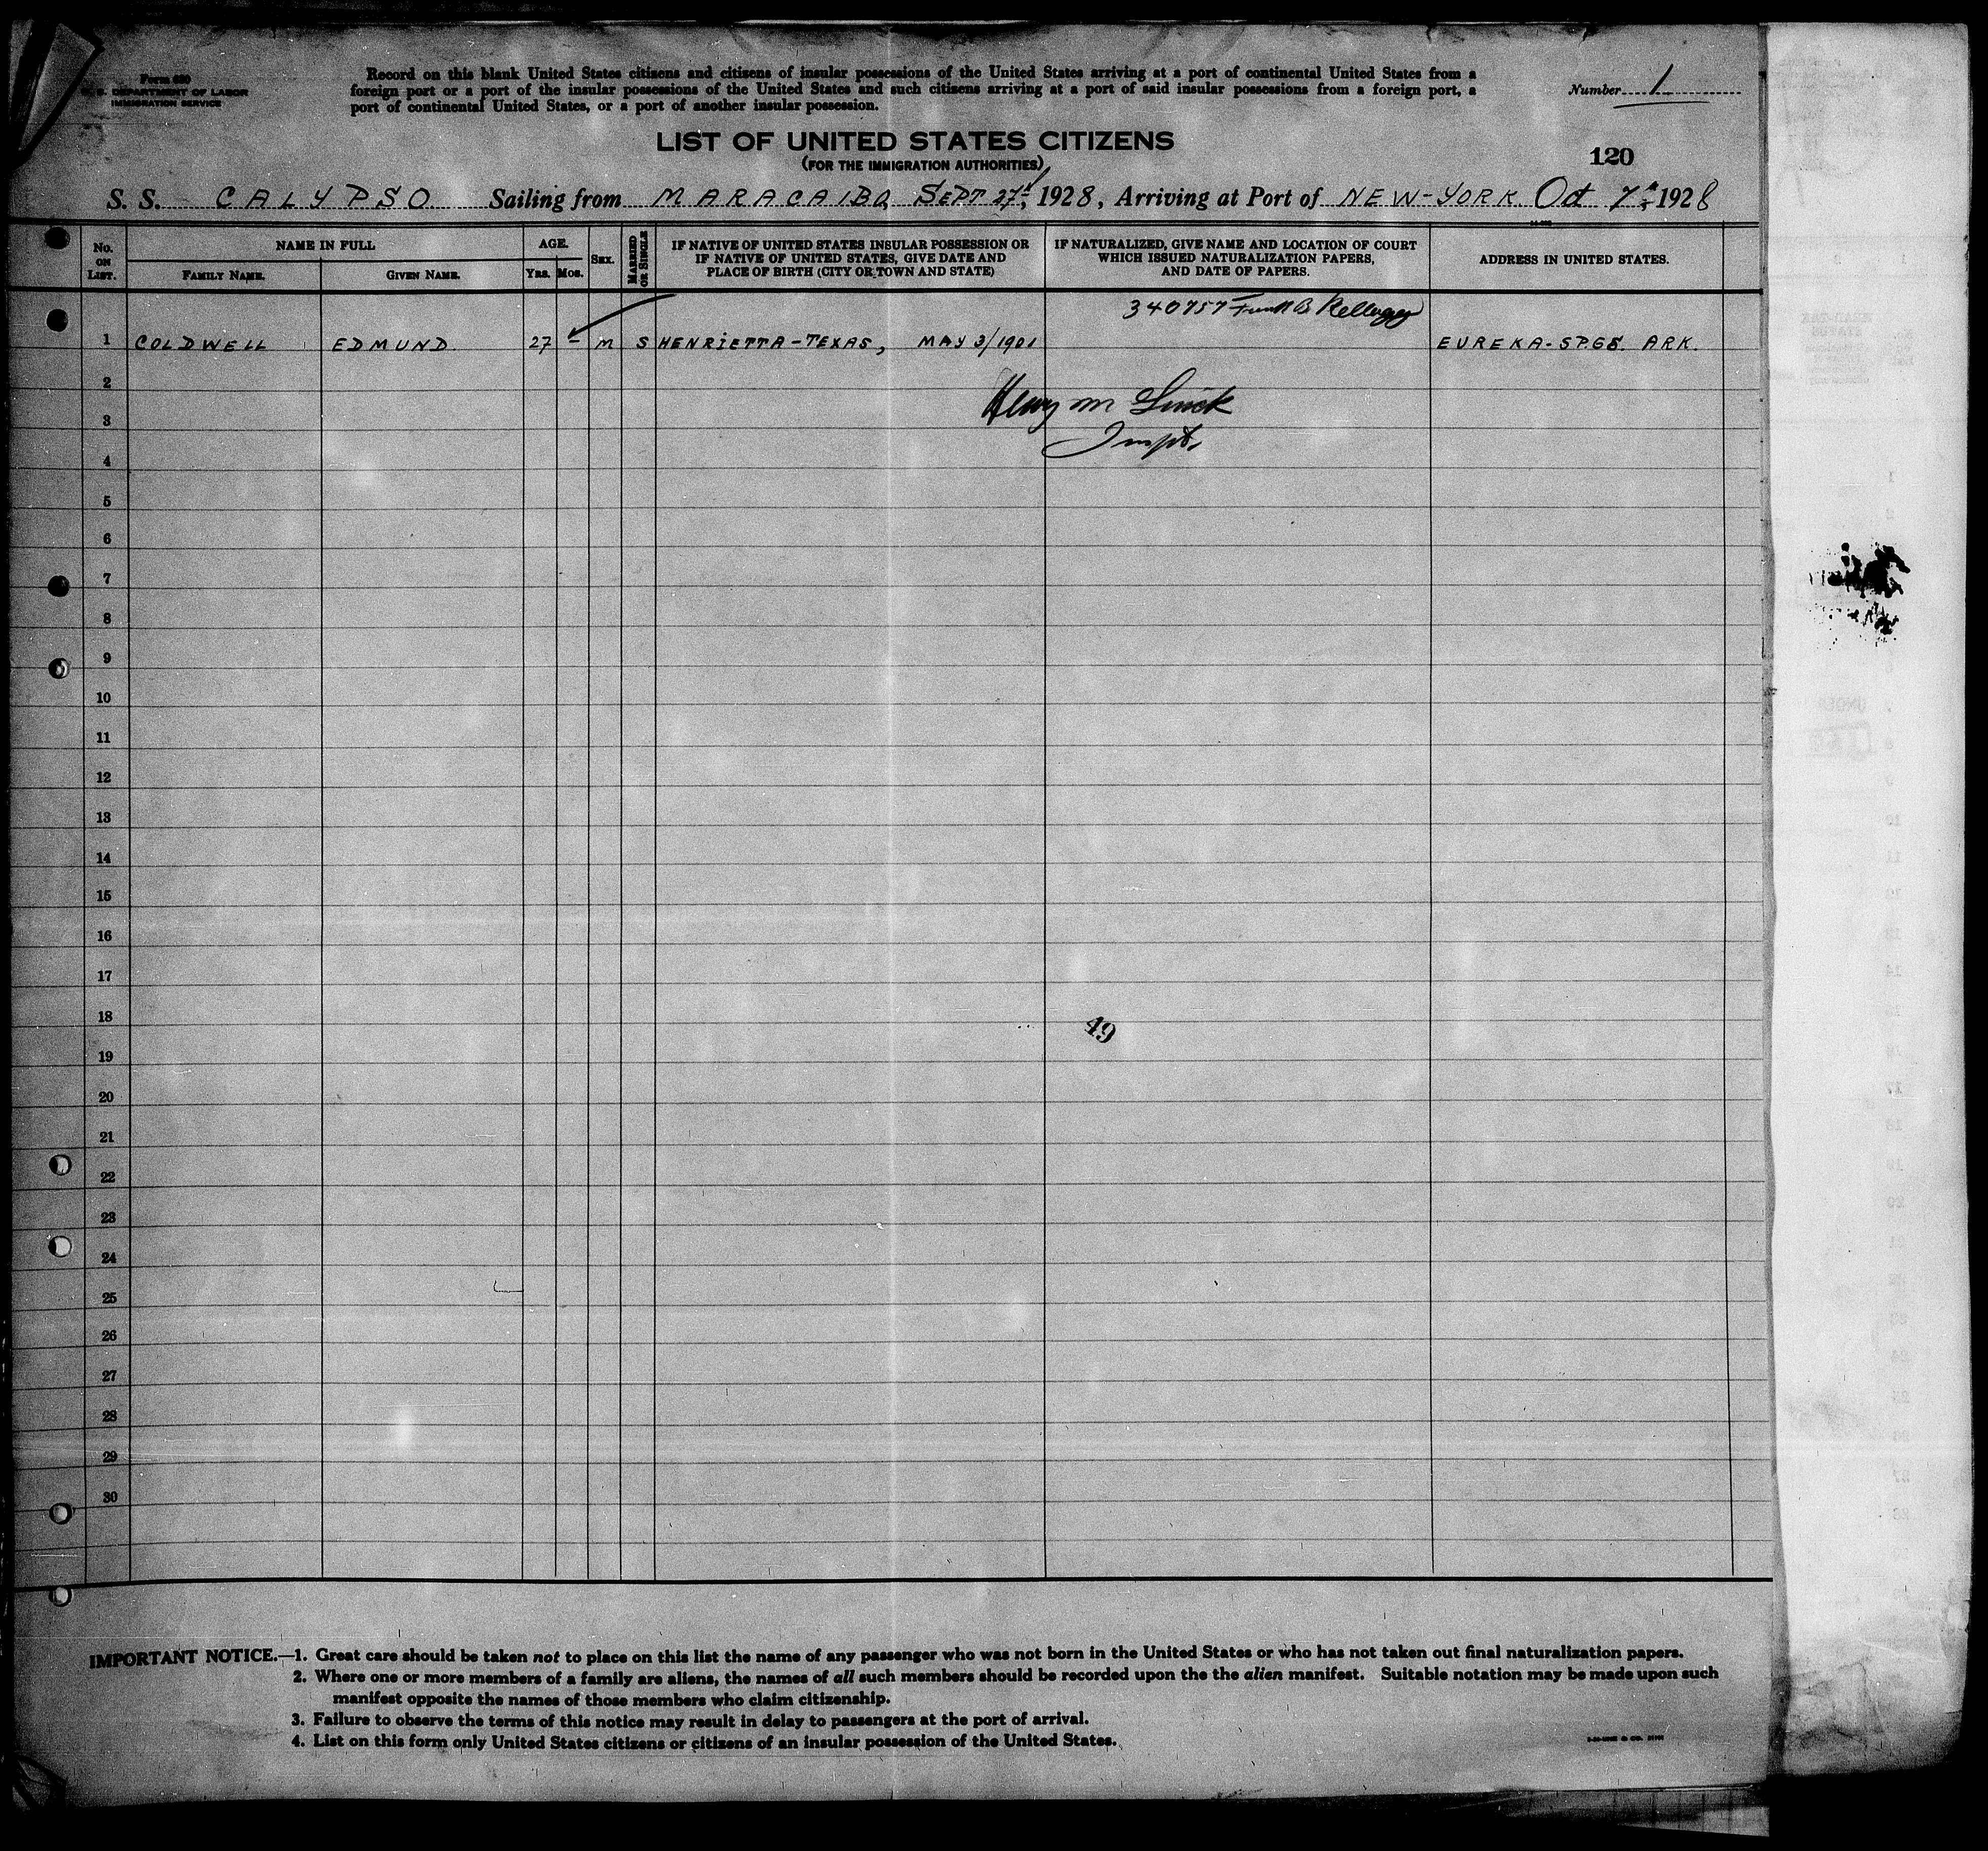 Form 630
U. S. DEPARTMENT OF LABOR
IMMIGRATION SERVICE
Record on this blank United States citizens and citizens of insular possessions of the United States arriving at a port of continental United States from a
foreign port or a port of the insular possessions of the United States and such citizens arriving at a port of said insular possessions from a foreign port, a
port of continental United States, or a port of another insular possession.
Number 1
LIST OF UNITED STATES CITIZENS
(FOR THE IMMIGRATION AUTHORITIES)
120
S. S. CALYPSO Sailing from MARACAIBO, SEPT 27th, 1928, Arriving at Port of NEW-YORK Oct 7th, 1928
No. ON LIST.
NAME IN FULL
FAMILY NAME.
GIVEN NAME.
AGE.
YRS. MOS.
SEX.
MARRIED OR SINGLE
IF NATIVE OF UNITED STATES INSULAR POSSESSION OR
IF NATIVE OF UNITED STATES, GIVE DATE AND
PLACE OF BIRTH (CITY OR TOWN AND STATE)
IF NATURALIZED, GIVE NAME AND LOCATION OF COURT
WHICH ISSUED NATURALIZATION PAPERS,
AND DATE OF PAPERS.
ADDRESS IN UNITED STATES.
340757 Frank B Kellogg
1 COLDWELL EDMUND 27 – M S HENRIETTA-TEXAS, MAY 3/1901 EUREKA-SPGS. ARK.
2
Henry M
3
Inspt.
4
5
6
7
8
9
10
11
12
13
14
15
16
17
18
49
19
20
21
22
23
24
25
26
27
28
29
30
IMPORTANT NOTICE.—1. Great care should be taken not to place on this list the name of any passenger who was not born in the United States or who has not taken out final naturalization papers.
2. Where one or more members of a family are aliens, the names of all such members should be recorded upon the the alien manifest. Suitable notation may be made upon such
manifest opposite the names of those members who claim citizenship.
3. Failure to observe the terms of this notice may result in delay to passengers at the port of arrival.
4. List on this form only United States citizens or citizens of an insular possession of the United States.